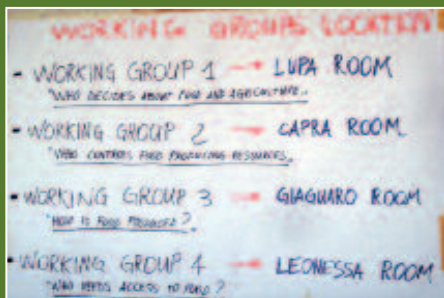 WORKING GROUPS LOCATION
- WORKING GROUP 1 → LUPA ROOM
"WHO DECIDES ABOUT FOOD AND AGRICULTURE..
- WORKING GROUP 2 → CAPRA ROOM
"WHO CONTROLS FOOD PRODUCING RESOURCES.
- WORKING GROUP 3 → GIAGUARO ROOM
"HOW IS FOOD PRODUCED?
- WORKING GROUP 4 → LEONESSA ROOM
"WHO NEEDS ACCESS TO FOOD?